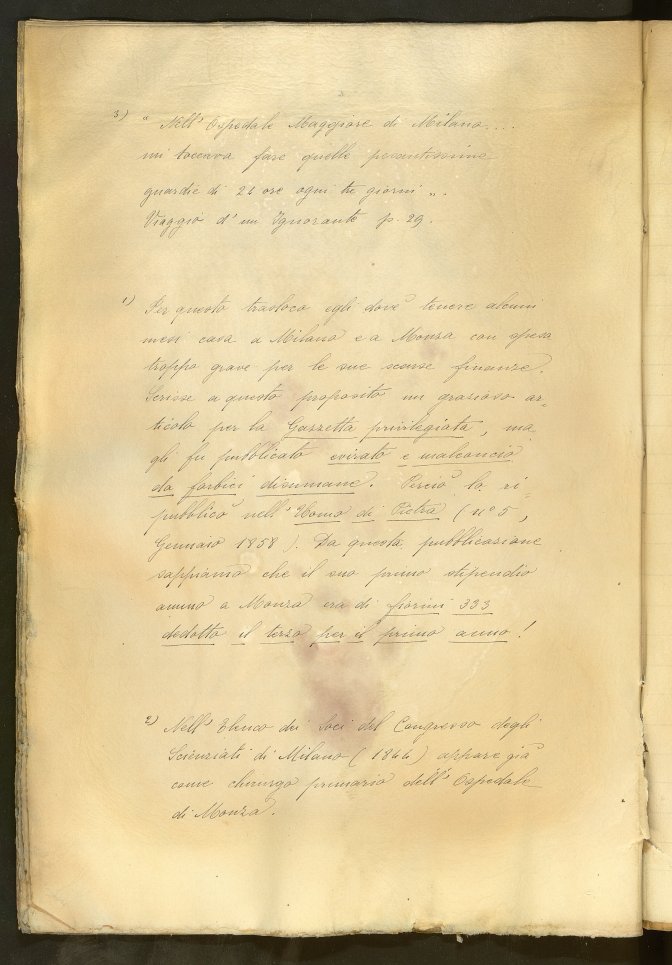 3) " Nell' Ospedale Maggiore di Milano...
mi toccava fare quelle pesantissime
guardie di 24 ore ogni tre giorni „.
Viaggio d' un Ignorante p. 29.
1) Per questo trasloco egli dovè tenere alcuni
mesi casa a Milano e a Monza con spesa
troppo grave per le sue scarse finanze.
Scrisse a questo proposito un grazioso ar-
ticolo per la Gazzetta privilegiata, ma
gli fu pubblicato evirato e malconcio
da forbici disumane. Perciò lo ri-
pubblicò nell' Uomo di Pietra (n° 5,
Gennaio 1858). Da questa pubblicazione
sappiamo che il suo primo stipendio
annuo a Monza era di fiorini 333
dedotto il terzo per il primo anno!
2) Nell' Elenco dei Soci del Congresso degli
Scienziati di Milano (1844) appare già
come chirurgo primario dell' Ospedale
di Monza.